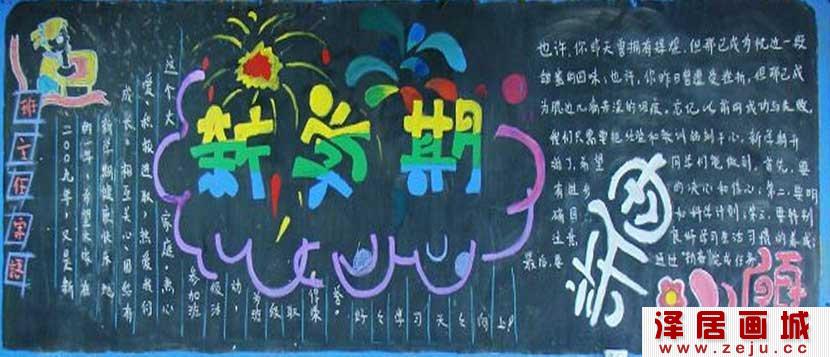 班主任寄语
二00九年，又是新
的一年，希望大家在
新学期健康快乐地
成长，相互关心、团结有
爱，积极进取，热爱我们
这个大家庭，热心
参加班级活动，为班级取得荣誉。
好好学习天天向上
新学期
也许，你昨天曾拥有辉煌，但那已成为枕边一段
甜蜜的回味；也许，你昨日曾遭受挫折，但那已成
为腮边几滴苦涩的泪痕。忘记以前的成功与失败，
我们只需要把经验和教训铭刻于心。新学期开
始了，希望同学们能做到：首先，要
有进步的决心和信心；第二，要明
确目标和科学计划；第三，要特别
注意良好学习生活习惯的养成；
最后，要
新
泽居画城
www.zeju.cc